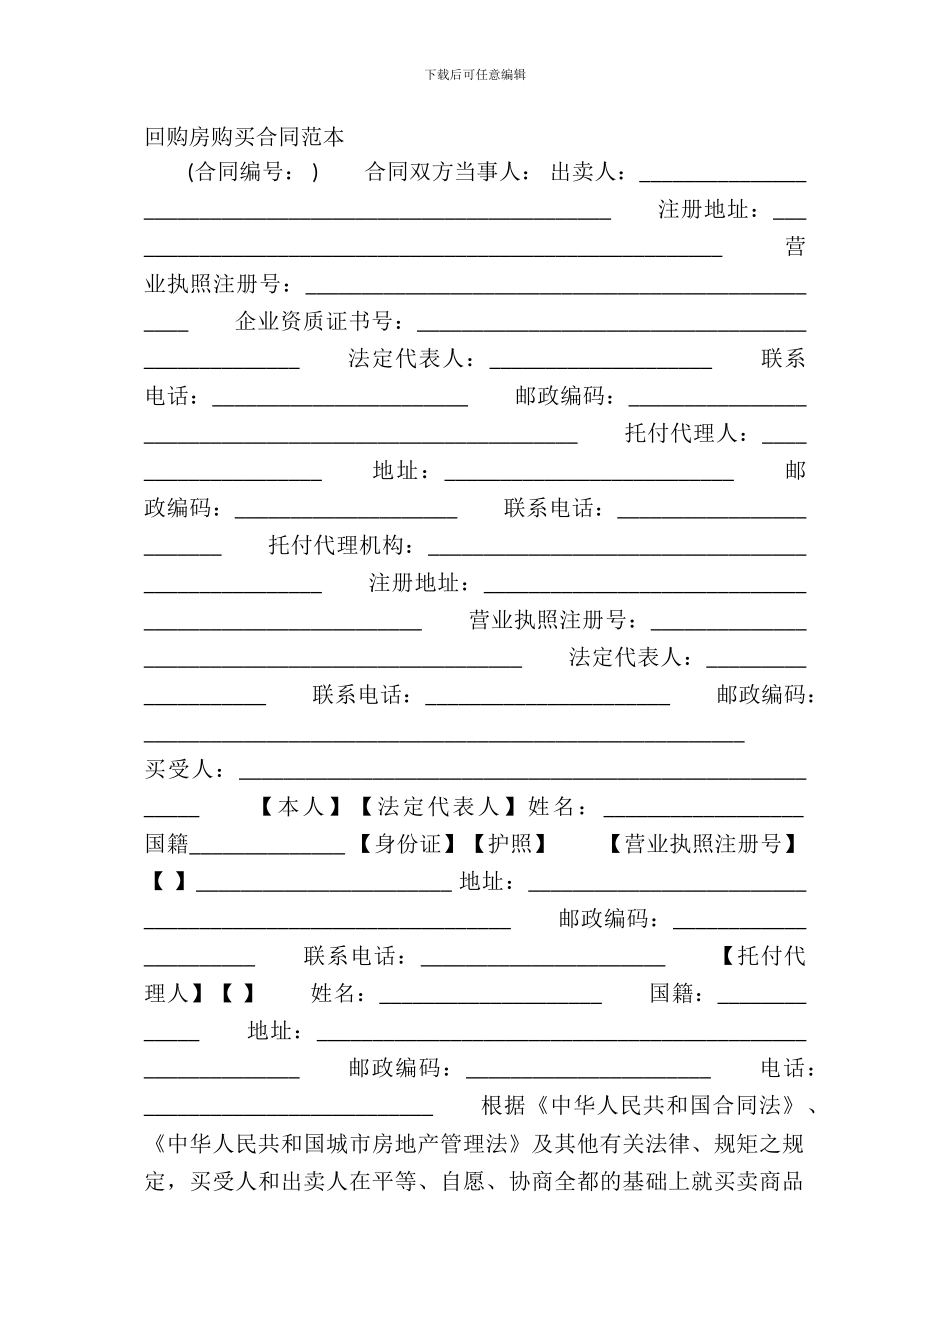 下载后可任意编辑
回购房购买合同范本
(合同编号： ) 合同双方当事人： 出卖人：_______________
__________________________________________ 注册地址：___
____________________________________________________ 营
业执照注册号：_____________________________________________
____ 企业资质证书号：___________________________________
______________ 法定代表人：____________________ 联系
电话：_______________________ 邮政编码：________________
_______________________________________ 托付代理人：____
________________ 地址：__________________________ 邮
政编码：____________________ 联系电话：_________________
_______ 托付代理机构：__________________________________
________________ 注册地址：_____________________________
_________________________ 营业执照注册号：______________
__________________________________ 法定代表人：_________
___________ 联系电话：______________________ 邮政编码：
______________________________________________________
买受人：___________________________________________________
_____ 【本人】【法定代表人】姓名：__________________
国籍______________ 【身份证】【护照】 【营业执照注册号】
【 】_______________________ 地址：_________________________
_________________________________ 邮政编码：____________
__________ 联系电话：______________________ 【托付代
理人】【 】 姓名：____________________ 国籍：________
_____ 地址：____________________________________________
______________ 邮政编码：______________________ 电话：
__________________________ 根据《中华人民共和国合同法》、
《中华人民共和国城市房地产管理法》及其他有关法律、规矩之规
定，买受人和出卖人在平等、自愿、协商全都的基础上就买卖商品